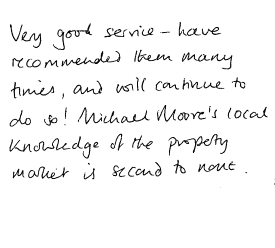 Very good service - have
recommended them many
times, and will continue to
do so! Michael Moore's local
knowledge of the property
market is second to none.